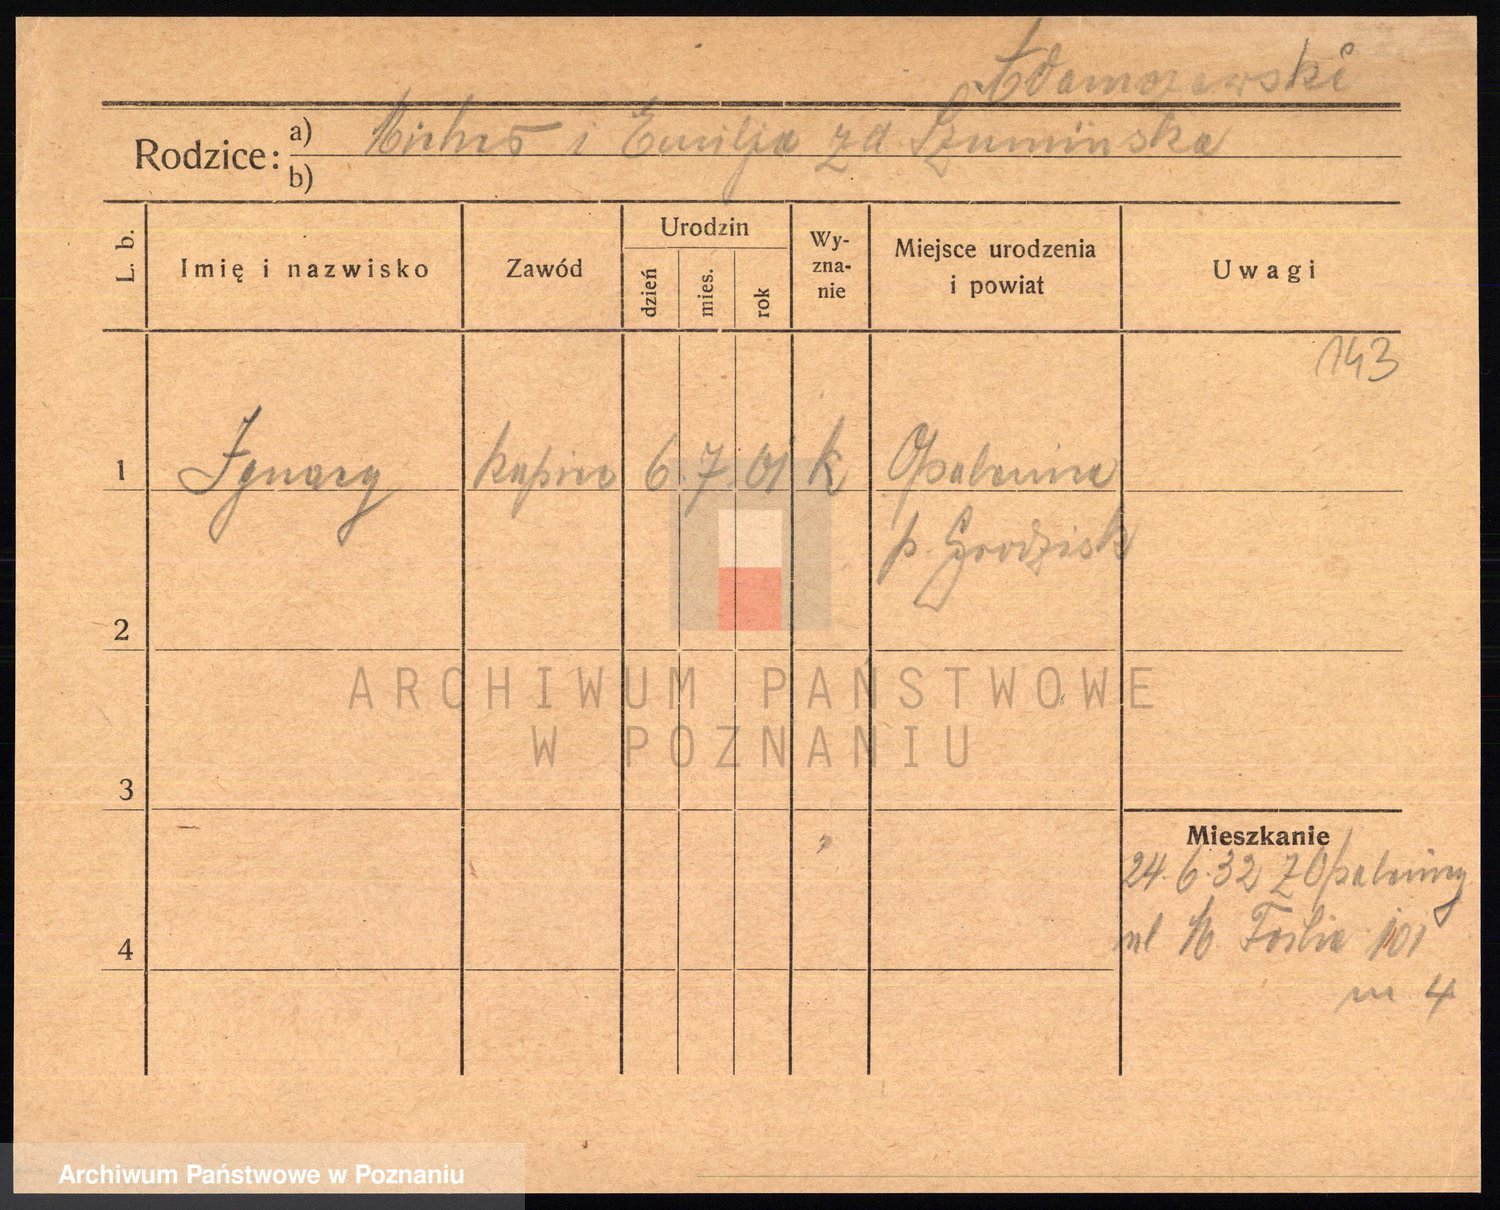 Adamczewski
Rodzice: a) Michał i Emilja zd Szumińska
b)
L. b.
Imię i nazwisko
Zawód
Urodzin
dzień
mies.
rok
Wy-
zna-
nie
Miejsce urodzenia
i powiat
Uwagi
143
1 Ignacy kupiec 6. 7. 01 k Opalenica
p. Grodzisk
2
3
4
Mieszkanie
24. 6. 32 z Opalenicy
ul M. Focha 101
m 4
ARCHIWUM PAŃSTWOWE
W POZNANIU
Archiwum Państwowe w Poznaniu